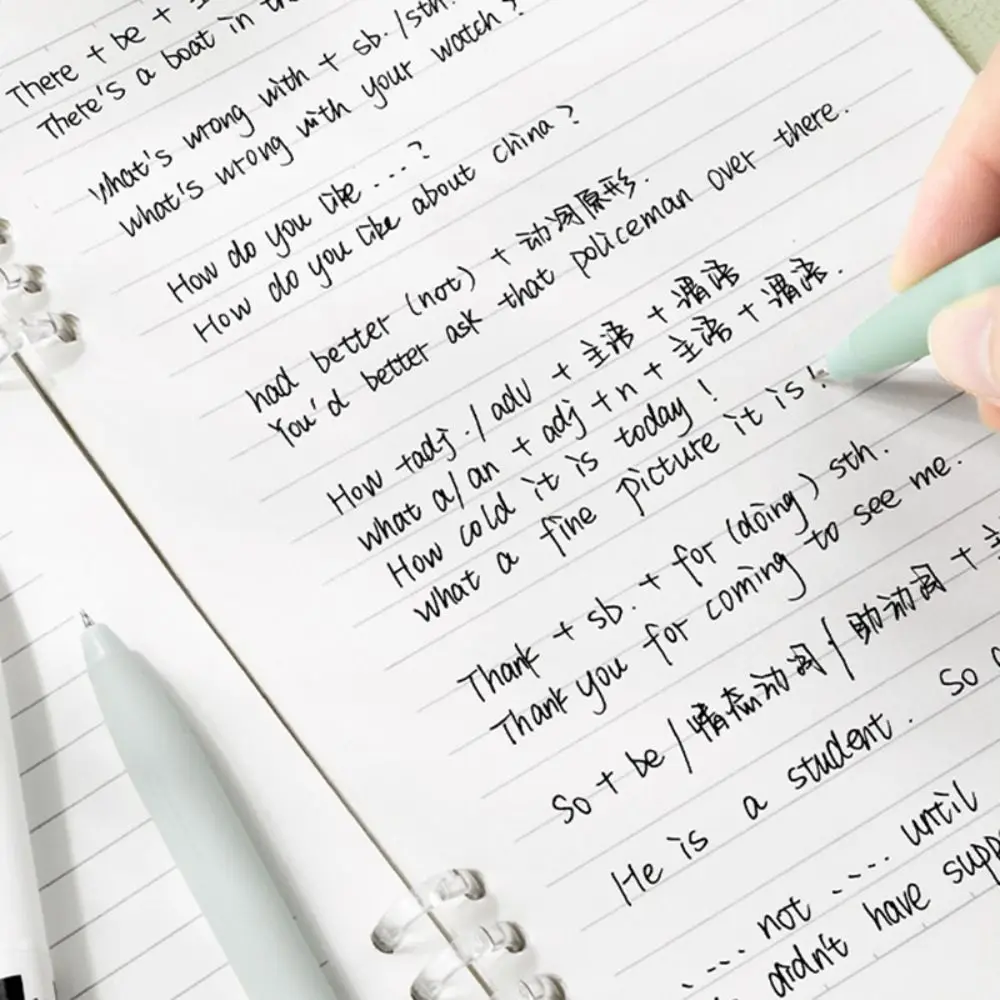 There + be +
There's a boat in the
What's wrong with + sb. /sth.
What's wrong with your watch?
How do you like ...?
How do you like about china?
had better (not) + 动词原形.
You'd better ask that policeman over there.
How +adj. / adv + 主语 + 谓语
what a/an + adj + n + 主语 + 谓语.
How cold it is today!
what a fine picture it is!
Thank + sb. + for (doing) sth.
Thank you for coming to see me.
So + be / 情态动词 / 助动词 + 主
He is a student. So
.... not .... until
didn't have supp